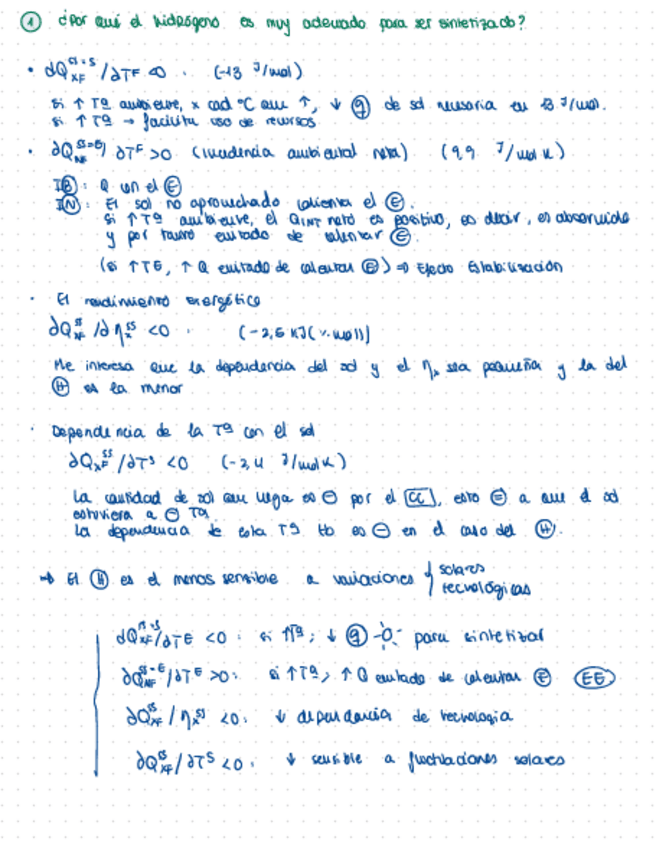 ① ¿Por qué el hidrógeno es muy adecuado para ser sintetizado?
• ∂Q_XF^SI-S /∂T^E <0 . (-13 J/mol)
si ↑ Tª ambiente, x cad °C que ↑, ↓ Ⓠ de sol necesaria en 13 J/mol.
si ↑ Tª → facilita uso de recursos.
• ∂Q_NF^SI-E / ∂T^E >0 (incidencia ambiental neta) (9,9 J/mol K)
IB : Q con el Ⓔ
IN : El sol no aprovechado calienta el Ⓔ.
si ↑ Tª ambiente, el Q_INT neto es positivo, es decir, es absorvido
y por tanto evitado de calentar Ⓔ.
(si ↑TE, ↑ Q evitado de calentar Ⓔ) ⇒ Efecto Estabilización
• El rendimiento exergético
∂Q_XF^SI /∂η_x^SI <0 . (-2,6 KJ( )
Me interesa que la dependencia del sol y el η_x sea pequeña y la del
Ⓗ es la menor
• Dependencia de la Tª con el sol
∂Q_XF^SI /∂T^S <0 (-2,4 J/mol K)
La cantidad de sol que llega es ⊖ por el CC, esto ⊜ a que el sol
estuviera a ⊖ Tª.
La dependencia de esta Tª tb es ⊖ en el caso del Ⓗ.
→ El Ⓗ es el menos sensible a variaciones { solares
tecnológicas
∂Q_XF^SI-S/∂T^E <0 : si ↑Tª; ↓ Ⓠ para sintetizar
∂Q_NF^SI-E /∂T^E >0: si ↑Tª, ↑ Q evitado de calentar Ⓔ (EE)
∂Q_XF^SI / η_x^SI <0: ↓ dependencia de tecnología
∂Q_XF^SI / ∂T^S <0: ↓ sensible a fluctuaciones solares